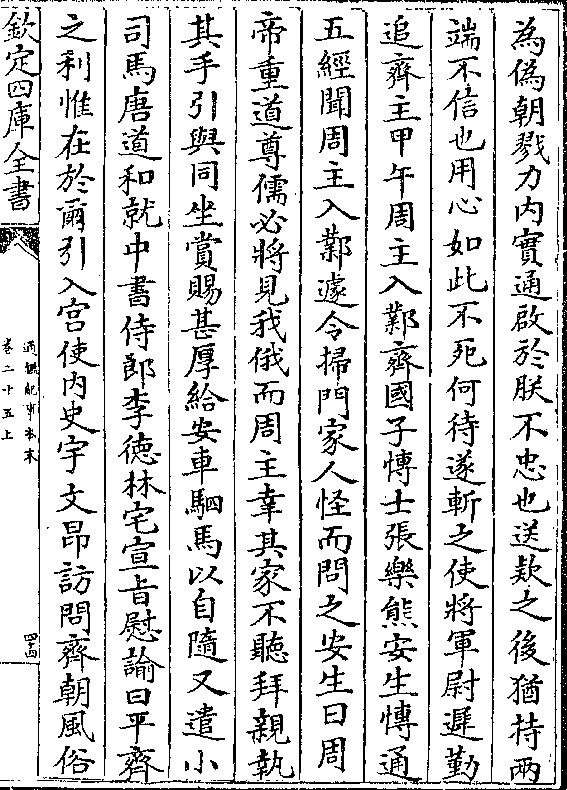 為偽朝戮力内實通啟於朕不忠也送欵之後猶持兩
端不信也用心如此不死何待遂斬之使將軍尉遲勤
追齊主甲午周主入鄴齊國子博士張樂熊安生博通
五經聞周主入鄴遽令掃門家人怪而問之安生曰周
帝重道尊儒必將見我俄而周主幸其家不聽拜親執
其手引與同坐賞賜甚厚給安車駟馬以自隨又遣小
司馬唐道和就中書侍郎李徳林宅宣旨慰諭曰平齊
之利惟在於爾引入宫使内史宇文昂訪問齊朝風俗
欽定四庫全書
通鑑紀事本末
卷二十五上
四